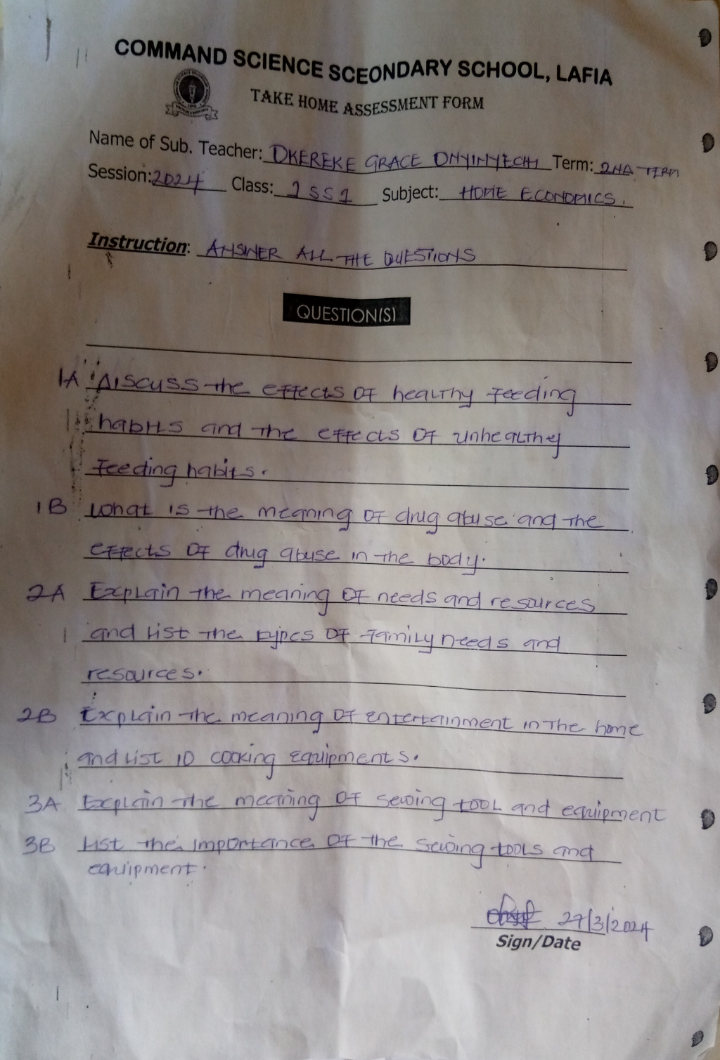 COMMAND SCIENCE SCEONDARY SCHOOL, LAFIA
TAKE HOME ASSESSMENT FORM
Name of Sub. Teacher: OKEREKE GRACE ONYINYECHI Term: 2ND TERM
Session: 2024 Class: JSS1 Subject: HOME ECONOMICS.
Instruction: ANSWER ALL THE QUESTIONS
QUESTION(S)
1A Discuss the effects of healthy feeding
habits and the effects of unhealthy
feeding habits.
1B What is the meaning of drug abuse and the
effects of drug abuse in the body.
2A Explain the meaning of needs and resources
and list the types of family needs and
resources.
2B Explain the meaning of entertainment in the home
and list 10 cooking equipments.
3A Explain the meaning of sewing tool and equipment
3B List the importance of the sewing tools and
equipment.
27/3/2024
Sign/Date